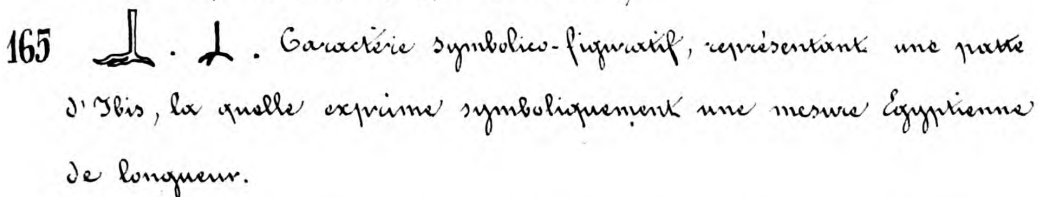 165 . . Caractére symbolico-figuratif, représentant une patte
d'Ibis, la quelle exprime symboliquement une mesure Egyptienne
de longueur.